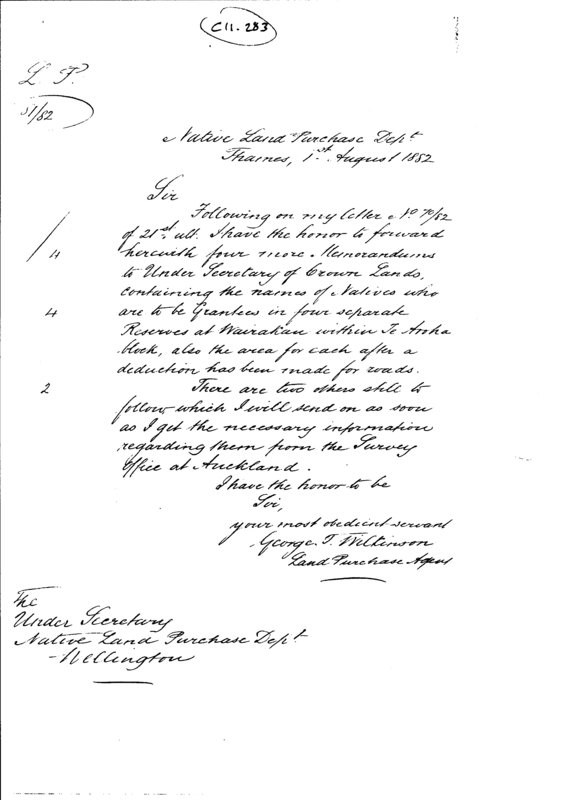 C11.283
L P.
51/82
Native Land Purchase Dept
Thames, 1st August 1882
Sir
Following on my letter No 70/82
of 21st ult. I have the honor to forward
4 herewith four more Memorandums
to Under Secretary of Crown Lands,
containing the names of Natives who
4 are to be Grantees in four separate
Reserves at Wairakau within Te Aroha
block, also the area for each after a
deduction has been made for roads.
2 There are two others still to
follow which I will send on as soon
as I get the necessary information
regarding them from the Survey
Office at Auckland.
I have the honor to be
Sir,
your most obedient servant
George T. Wilkinson
Land Purchase Agent
The
Under Secretary
Native Land Purchase Dept
Wellington